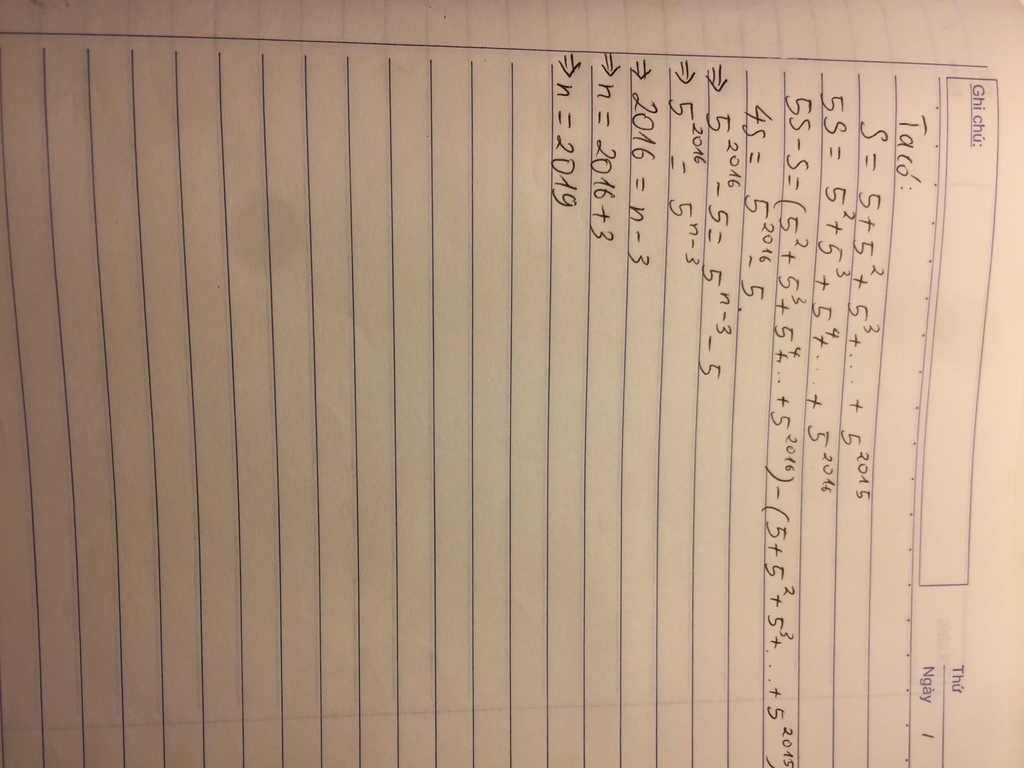 Ghi chú:
Thứ
Ngày /
Ta có:
S = 5 + 5² + 5³ + ... + 5²⁰¹⁵
5S = 5² + 5³ + 5⁴ + ... + 5²⁰¹⁶
5S - S = (5² + 5³ + 5⁴ + ... + 5²⁰¹⁶) - (5 + 5² + 5³ + ... + 5²⁰¹⁵)
4S = 5²⁰¹⁶ - 5
⇒ 5²⁰¹⁶ - 5 = 5ⁿ⁻³ - 5
⇒ 5²⁰¹⁶ = 5ⁿ⁻³
⇒ 2016 = n - 3
⇒ n = 2016 + 3
⇒ n = 2019